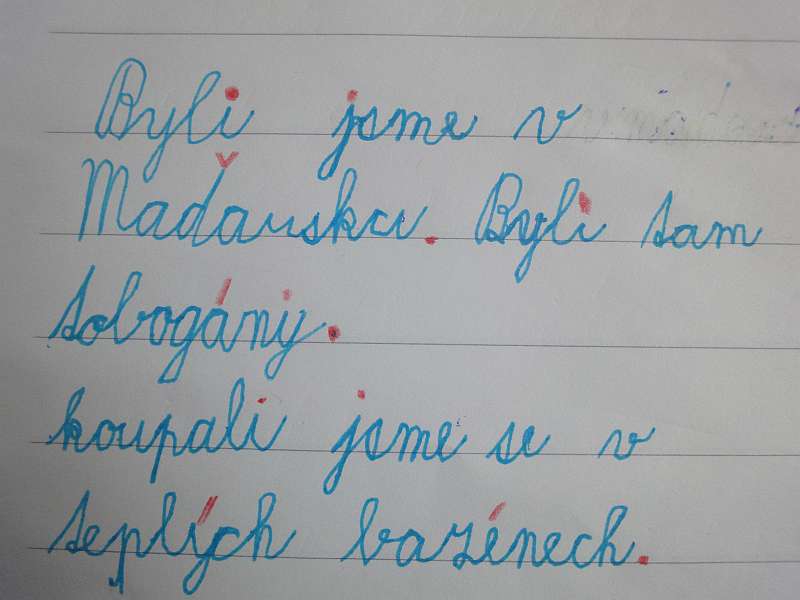 Byli jsme v
Maďarsku. Byli tam
tobogány.
koupali jsme se v
teplých bazénech.